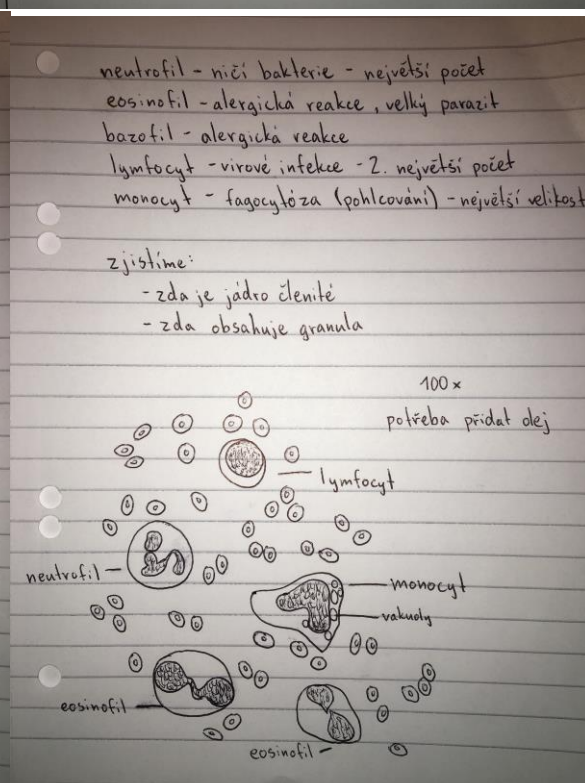 neutrofil - ničí bakterie - největší počet
eosinofil - alergická reakce, velký parazit
bazofil - alergická reakce
lymfocyt - virové infekce - 2. největší počet
monocyt - fagocytóza (pohlcování) - největší velikost
zjistíme:
- zda je jádro členité
- zda obsahuje granula
100 x
potřeba přidat olej
lymfocyt
neutrofil
monocyt
vakuoly
eosinofil
eosinofil